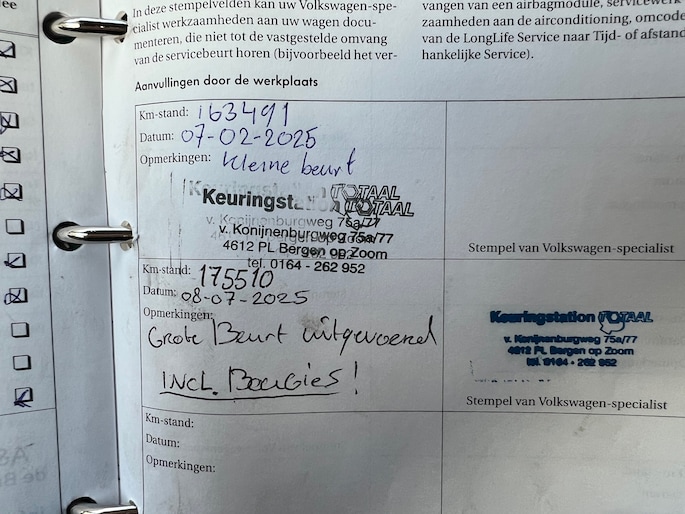 ee
In deze stempelvelden kan uw Volkswagen-spe-
cialist werkzaamheden aan uw wagen docu-
menteren, die niet tot de vastgestelde omvang
van de servicebeurt horen (bijvoorbeeld het ver-
vangen van een airbagmodule, servicewerk
zaamheden aan de airconditioning, omcode
van de LongLife Service naar Tijd- of afstand
hankelijke Service).
Aanvullingen door de werkplaats
Km-stand: 163491
Datum: 07-02-2025
Opmerkingen: Kleine beurt
Keuringstation TOTAAL
v. Konijnenburgweg 75a/77
4612 PL Bergen op Zoom
tel. 0164 - 262 952
Stempel van Volkswagen-specialist
Km-stand: 175510
Datum: 08-07-2025
Opmerkingen:
Grote Beurt uitgevoerd
INCL. Bougies!
Keuringstation TOTAAL
v. Konijnenburgweg 75a/77
4612 PL Bergen op Zoom
tel. 0164 - 262 952
Stempel van Volkswagen-specialist
Km-stand:
Datum:
Opmerkingen: